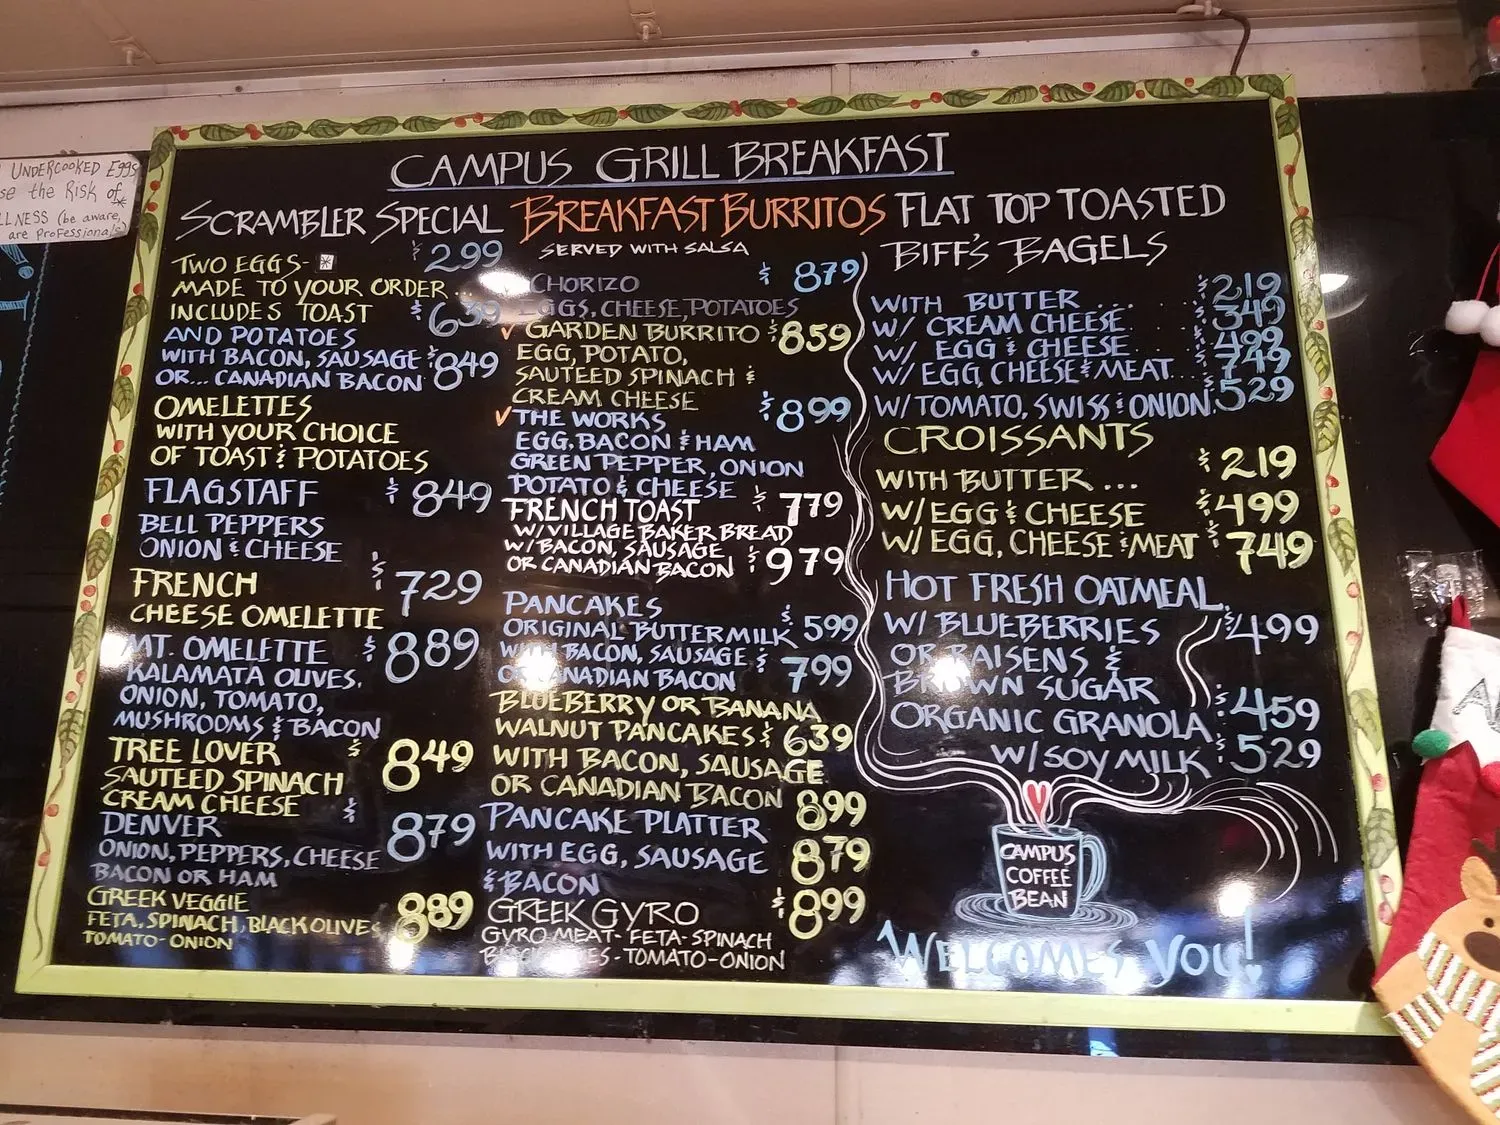 UNDERCOOKED EGGS
se the Risk of
LLNESS (be aware,
are professionals)
CAMPUS GRILL BREAKFAST
SCRAMBLER SPECIAL
TWO EGGS- $2.99
MADE TO YOUR ORDER...
INCLUDES TOAST $6.39
AND POTATOES
WITH BACON, SAUSAGE $8.49
OR... CANADIAN BACON
OMELETTES
WITH YOUR CHOICE
OF TOAST & POTATOES
FLAGSTAFF $8.49
BELL PEPPERS
ONION & CHEESE
FRENCH $7.29
CHEESE OMELETTE
MT. OMELETTE $8.89
KALAMATA OLIVES,
ONION, TOMATO,
MUSHROOMS & BACON
TREE LOVER $8.49
SAUTEED SPINACH
CREAM CHEESE
DENVER $8.79
ONION, PEPPERS, CHEESE
BACON OR HAM
GREEK VEGGIE 8.89
FETA, SPINACH, BLACK OLIVES
TOMATO-ONION
BREAKFAST BURRITOS
SERVED WITH SALSA
CHORIZO $8.79
EGGS, CHEESE, POTATOES
✓ GARDEN BURRITO $8.59
EGG, POTATO,
SAUTEED SPINACH &
CREAM CHEESE
✓ THE WORKS $8.99
EGG, BACON & HAM
GREEN PEPPER, ONION
POTATO & CHEESE
FRENCH TOAST $7.79
W/VILLAGE BAKER BREAD
W/BACON, SAUSAGE
OR CANADIAN BACON $9.79
PANCAKES
ORIGINAL BUTTERMILK $5.99
WITH BACON, SAUSAGE $7.99
OR CANADIAN BACON
BLUEBERRY OR BANANA
WALNUT PANCAKES $6.39
WITH BACON, SAUSAGE
OR CANADIAN BACON 8.99
PANCAKE PLATTER
WITH EGG, SAUSAGE 8.79
& BACON
GREEK GYRO $8.99
GYRO MEAT-FETA-SPINACH
BLACK OLIVES-TOMATO-ONION
FLAT TOP TOASTED
BIFF'S BAGELS
WITH BUTTER ... $2.19
W/ CREAM CHEESE $3.49
W/ EGG & CHEESE $4.99
W/ EGG, CHEESE & MEAT $7.49
W/TOMATO, SWISS & ONION $5.29
CROISSANTS
WITH BUTTER ... $2.19
W/EGG & CHEESE $4.99
W/ EGG, CHEESE & MEAT $7.49
HOT FRESH OATMEAL
W/ BLUEBERRIES $4.99
OR RAISENS &
BROWN SUGAR
ORGANIC GRANOLA $4.59
W/SOY MILK $5.29
CAMPUS
COFFEE
BEAN
WELCOMES YOU!